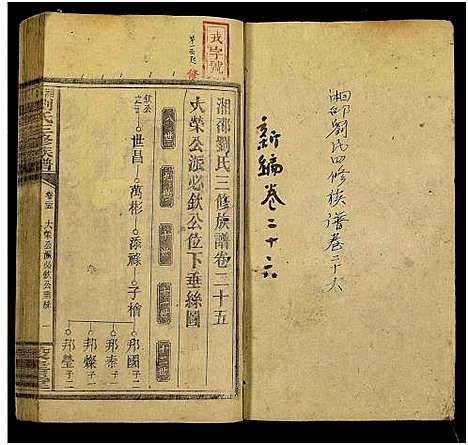 湘邵劉氏四修族譜卷二十六
新編卷二十六
戎字號
湘邵劉氏三修族譜卷二十五
大榮公派必欽公位下垂絲圖
欽公之
世昌
萬彬
添祿
子檜
邦國 子二
邦泰 子二
邦燦 子二
邦瑩 子二
劉氏三修族譜
卷二十五
大榮公派必欽公垂絲
一